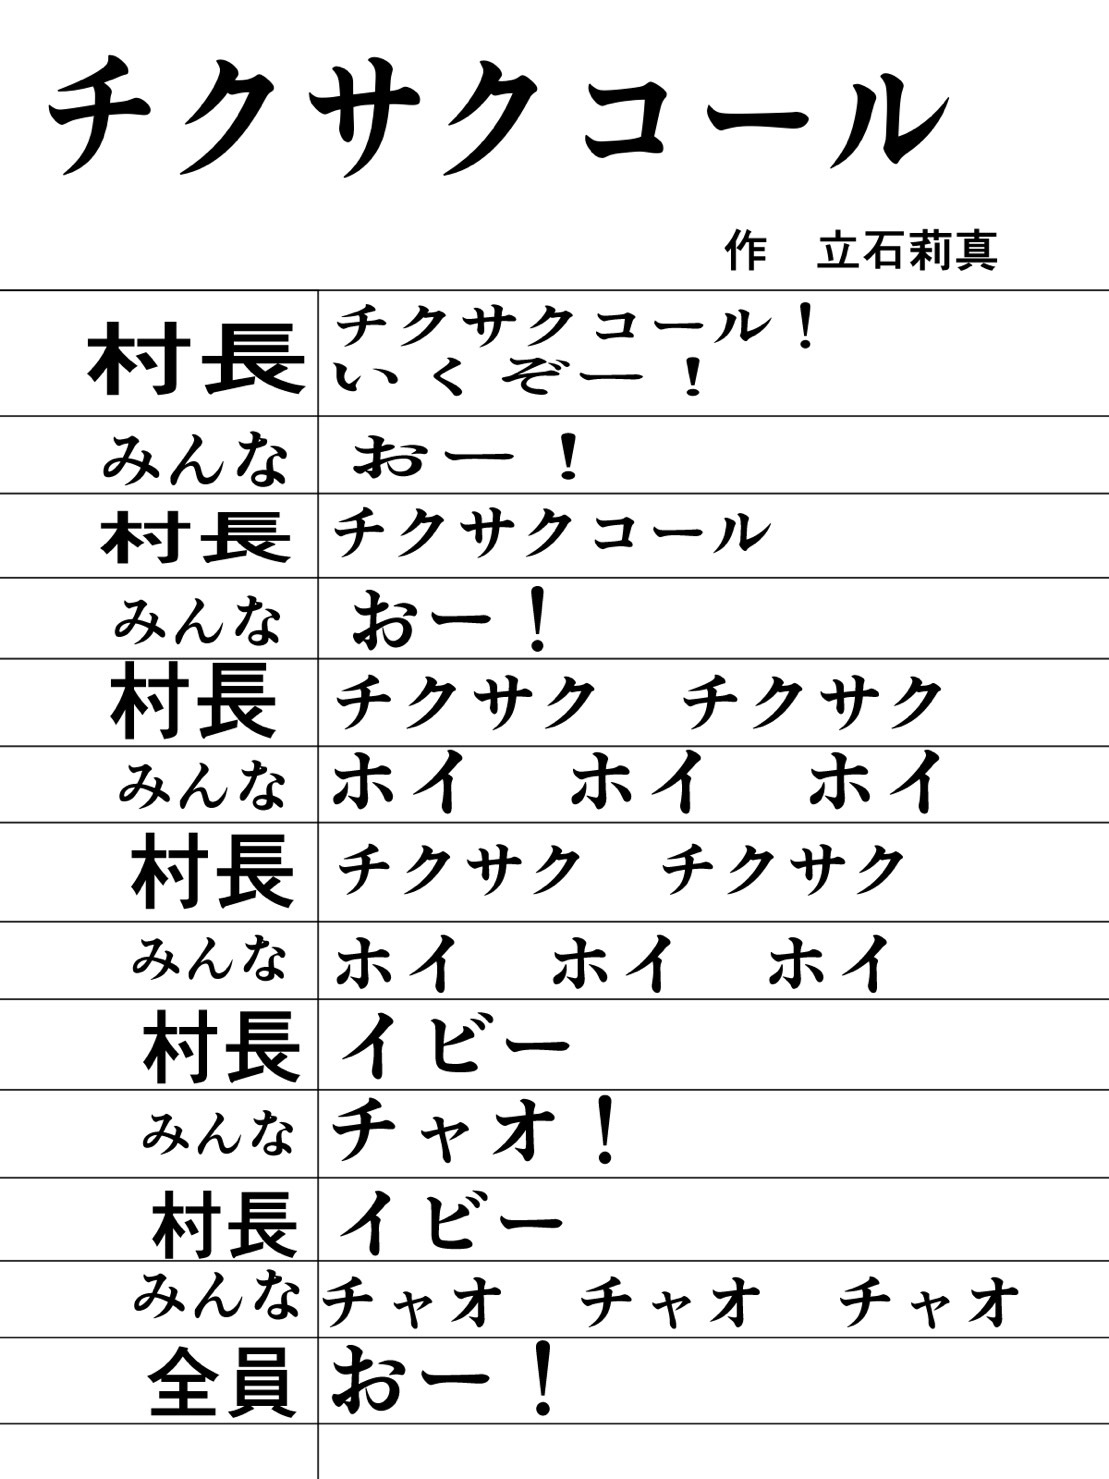 チクサクコール
作　立石莉真
村長 チクサクコール！
いくぞー！
みんな おー！
村長 チクサクコール
みんな おー！
村長 チクサク　チクサク
みんな ホイ　ホイ　ホイ
村長 チクサク　チクサク
みんな ホイ　ホイ　ホイ
村長 イビー
みんな チャオ！
村長 イビー
みんな チャオ　チャオ　チャオ
全員 おー！